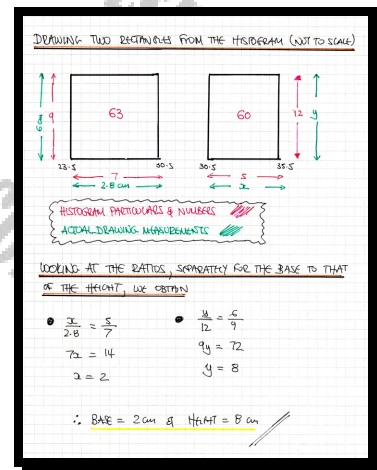 DRAWING TWO RECTANGLES FROM THE HISTOGRAM (NOT TO SCALE)
6 cm 9 63 60 12 y
23.5 30.5 30.5 35.5
7 5
2.8 cm x
HISTOGRAM PARTICULARS & NUMBERS
ACTUAL DRAWING MEASUREMENTS
LOOKING AT THE RATIOS, SEPARATELY FOR THE BASE TO THAT
OF THE HEIGHT, WE OBTAIN
• x/2.8 = 5/7 • y/12 = 6/9
7x = 14 9y = 72
x = 2 y = 8
∴ BASE = 2 cm & HEIGHT = 8 cm